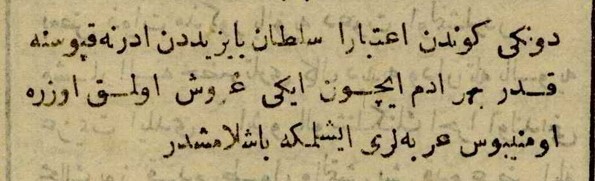 دونکی کوندن اعتبارا سلطان بایزیددن ادرنه قپوسنه
قدر بهر ادم ایچون ایکی غروش اولمق اوزره
اومنیبوس عربه‌لری ایشلمکه باشلامشدر